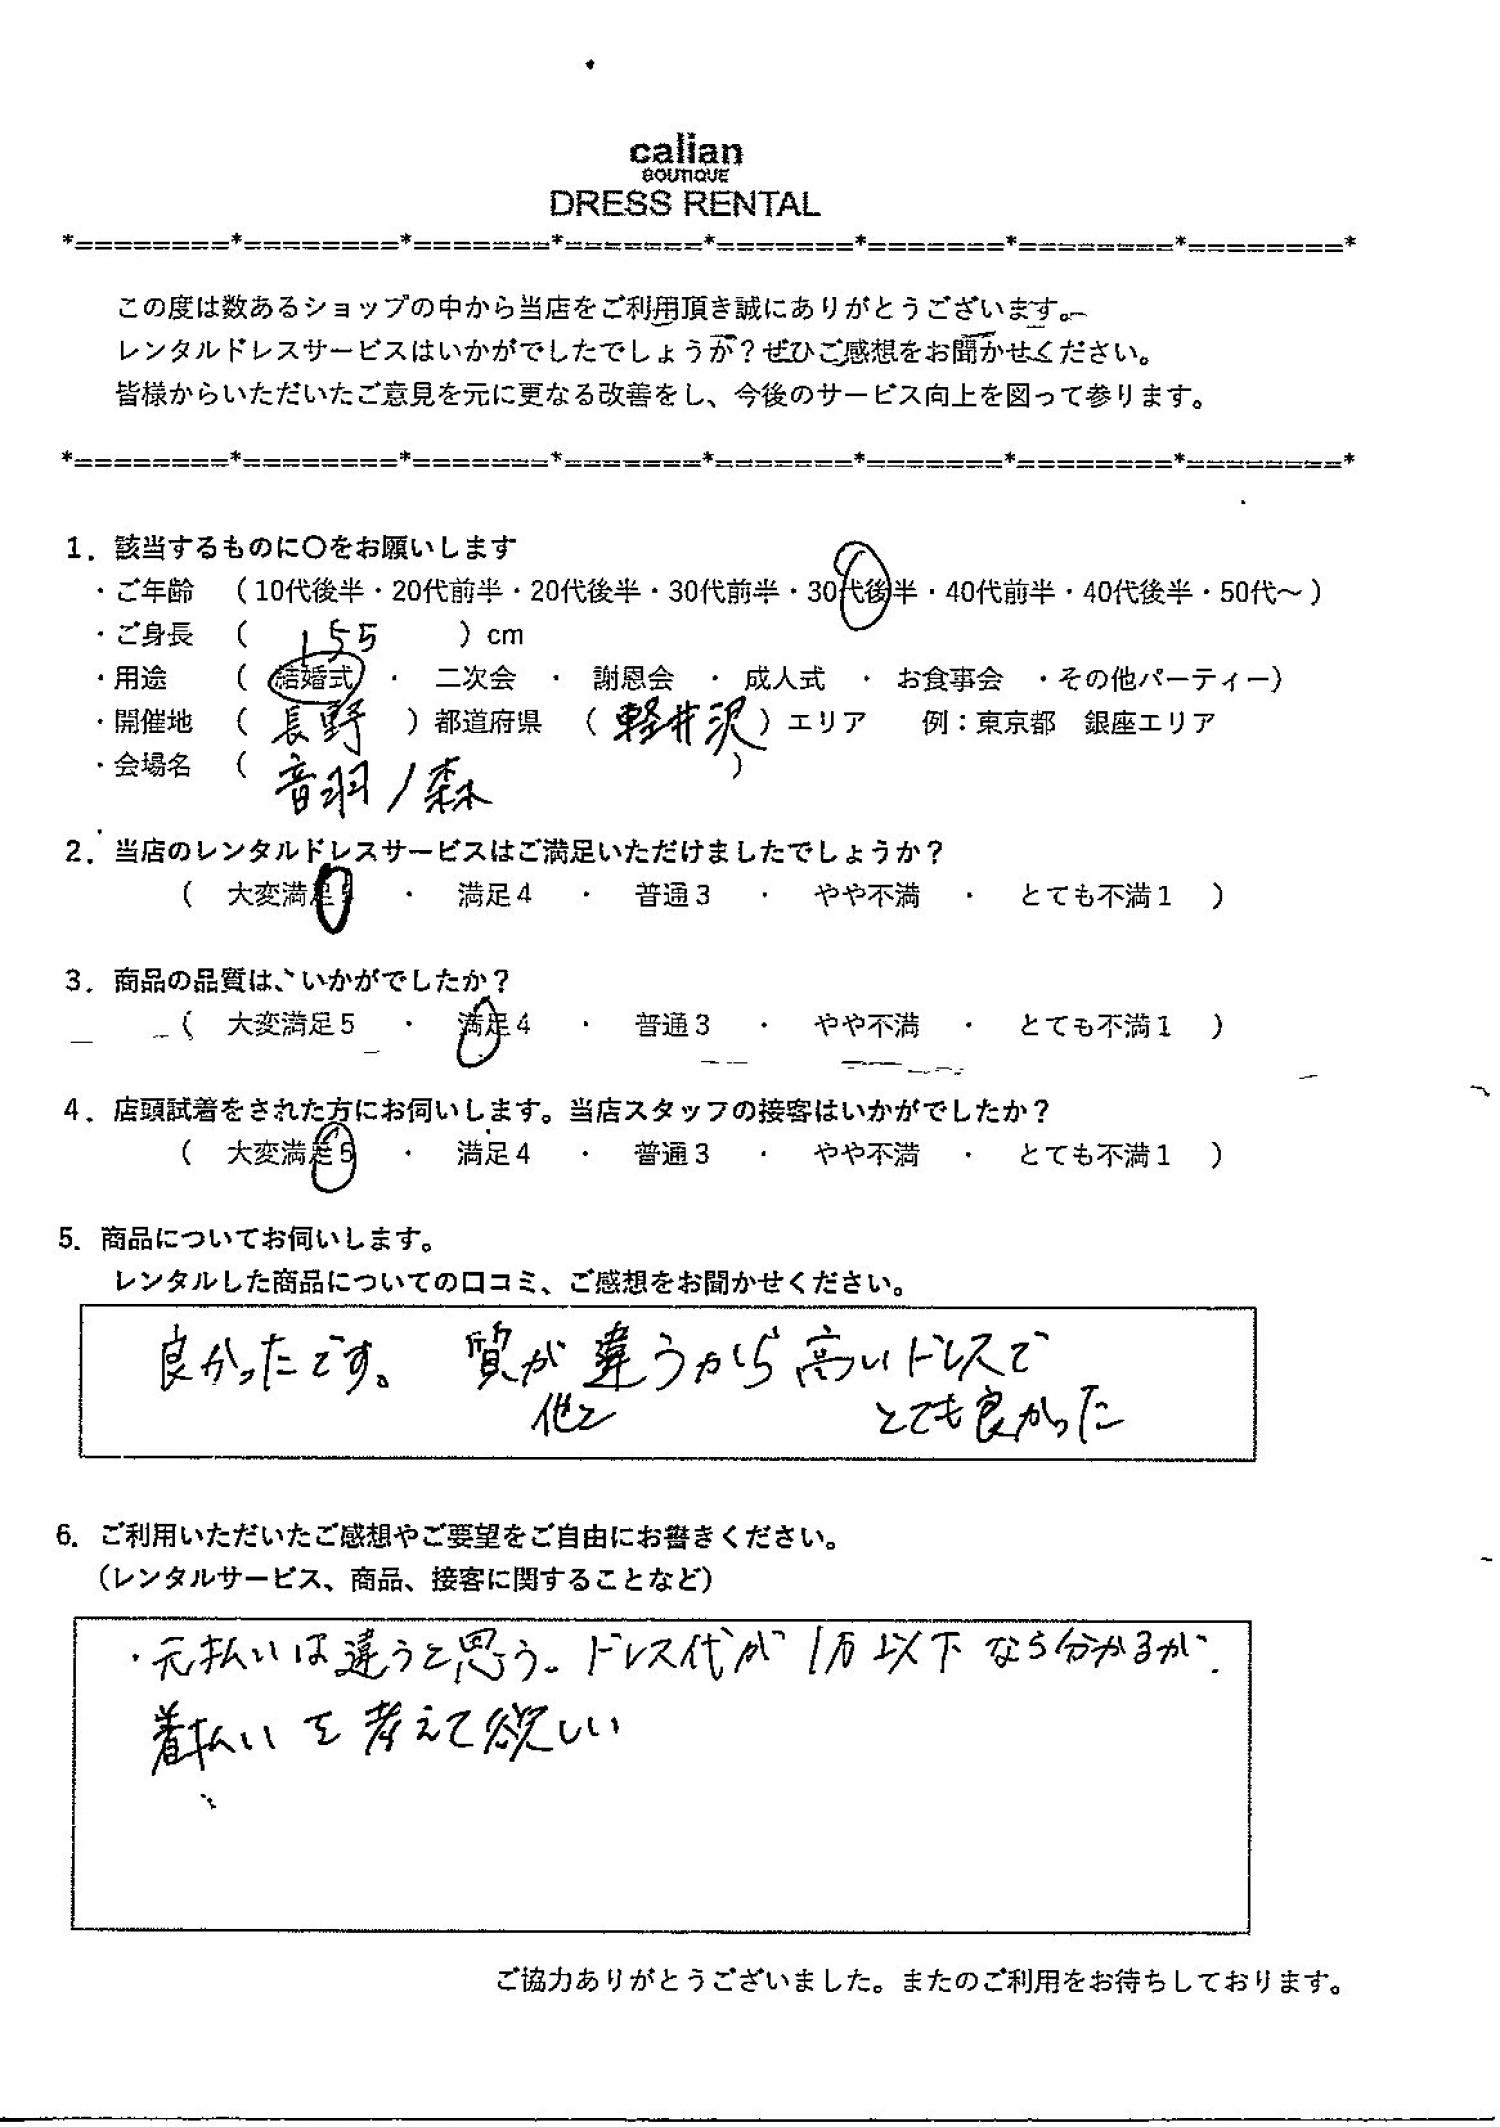 calian
BOUTIQUE
DRESS RENTAL
*========*========*=======*=======*=======*=======*========*========*
この度は数あるショップの中から当店をご利用頂き誠にありがとうございます。
レンタルドレスサービスはいかがでしたでしょうか？ぜひご感想をお聞かせください。
皆様からいただいたご意見を元に更なる改善をし、今後のサービス向上を図って参ります。
*========*========*=======*=======*=======*=======*========*========*
1．該当するものに〇をお願いします
・ご年齢 （10代後半・20代前半・20代後半・30代前半・30代後半・40代前半・40代後半・50代～）
・ご身長 （ 155 ）cm
・用途 （ 結婚式 ・ 二次会 ・ 謝恩会 ・ 成人式 ・ お食事会 ・その他パーティー）
・開催地 （ 長野 ）都道府県 （ 軽井沢 ）エリア 例：東京都 銀座エリア
・会場名 （ 音羽ノ森 ）
2．当店のレンタルドレスサービスはご満足いただけましたでしょうか？
（ 大変満足5 ・ 満足4 ・ 普通3 ・ やや不満 ・ とても不満1 ）
3．商品の品質は、いかがでしたか？
（ 大変満足5 ・ 満足4 ・ 普通3 ・ やや不満 ・ とても不満1 ）
4．店頭試着をされた方にお伺いします。当店スタッフの接客はいかがでしたか？
（ 大変満足5 ・ 満足4 ・ 普通3 ・ やや不満 ・ とても不満1 ）
5．商品についてお伺いします。
レンタルした商品についての口コミ、ご感想をお聞かせください。
良かったです。 質が違うから高いドレスで
他と とても良かった
6．ご利用いただいたご感想やご要望をご自由にお書きください。
（レンタルサービス、商品、接客に関することなど）
・元払いは違うと思う。ドレス代が1万以下なら分かるが.
着払いを考えて欲しい
ご協力ありがとうございました。またのご利用をお待ちしております。